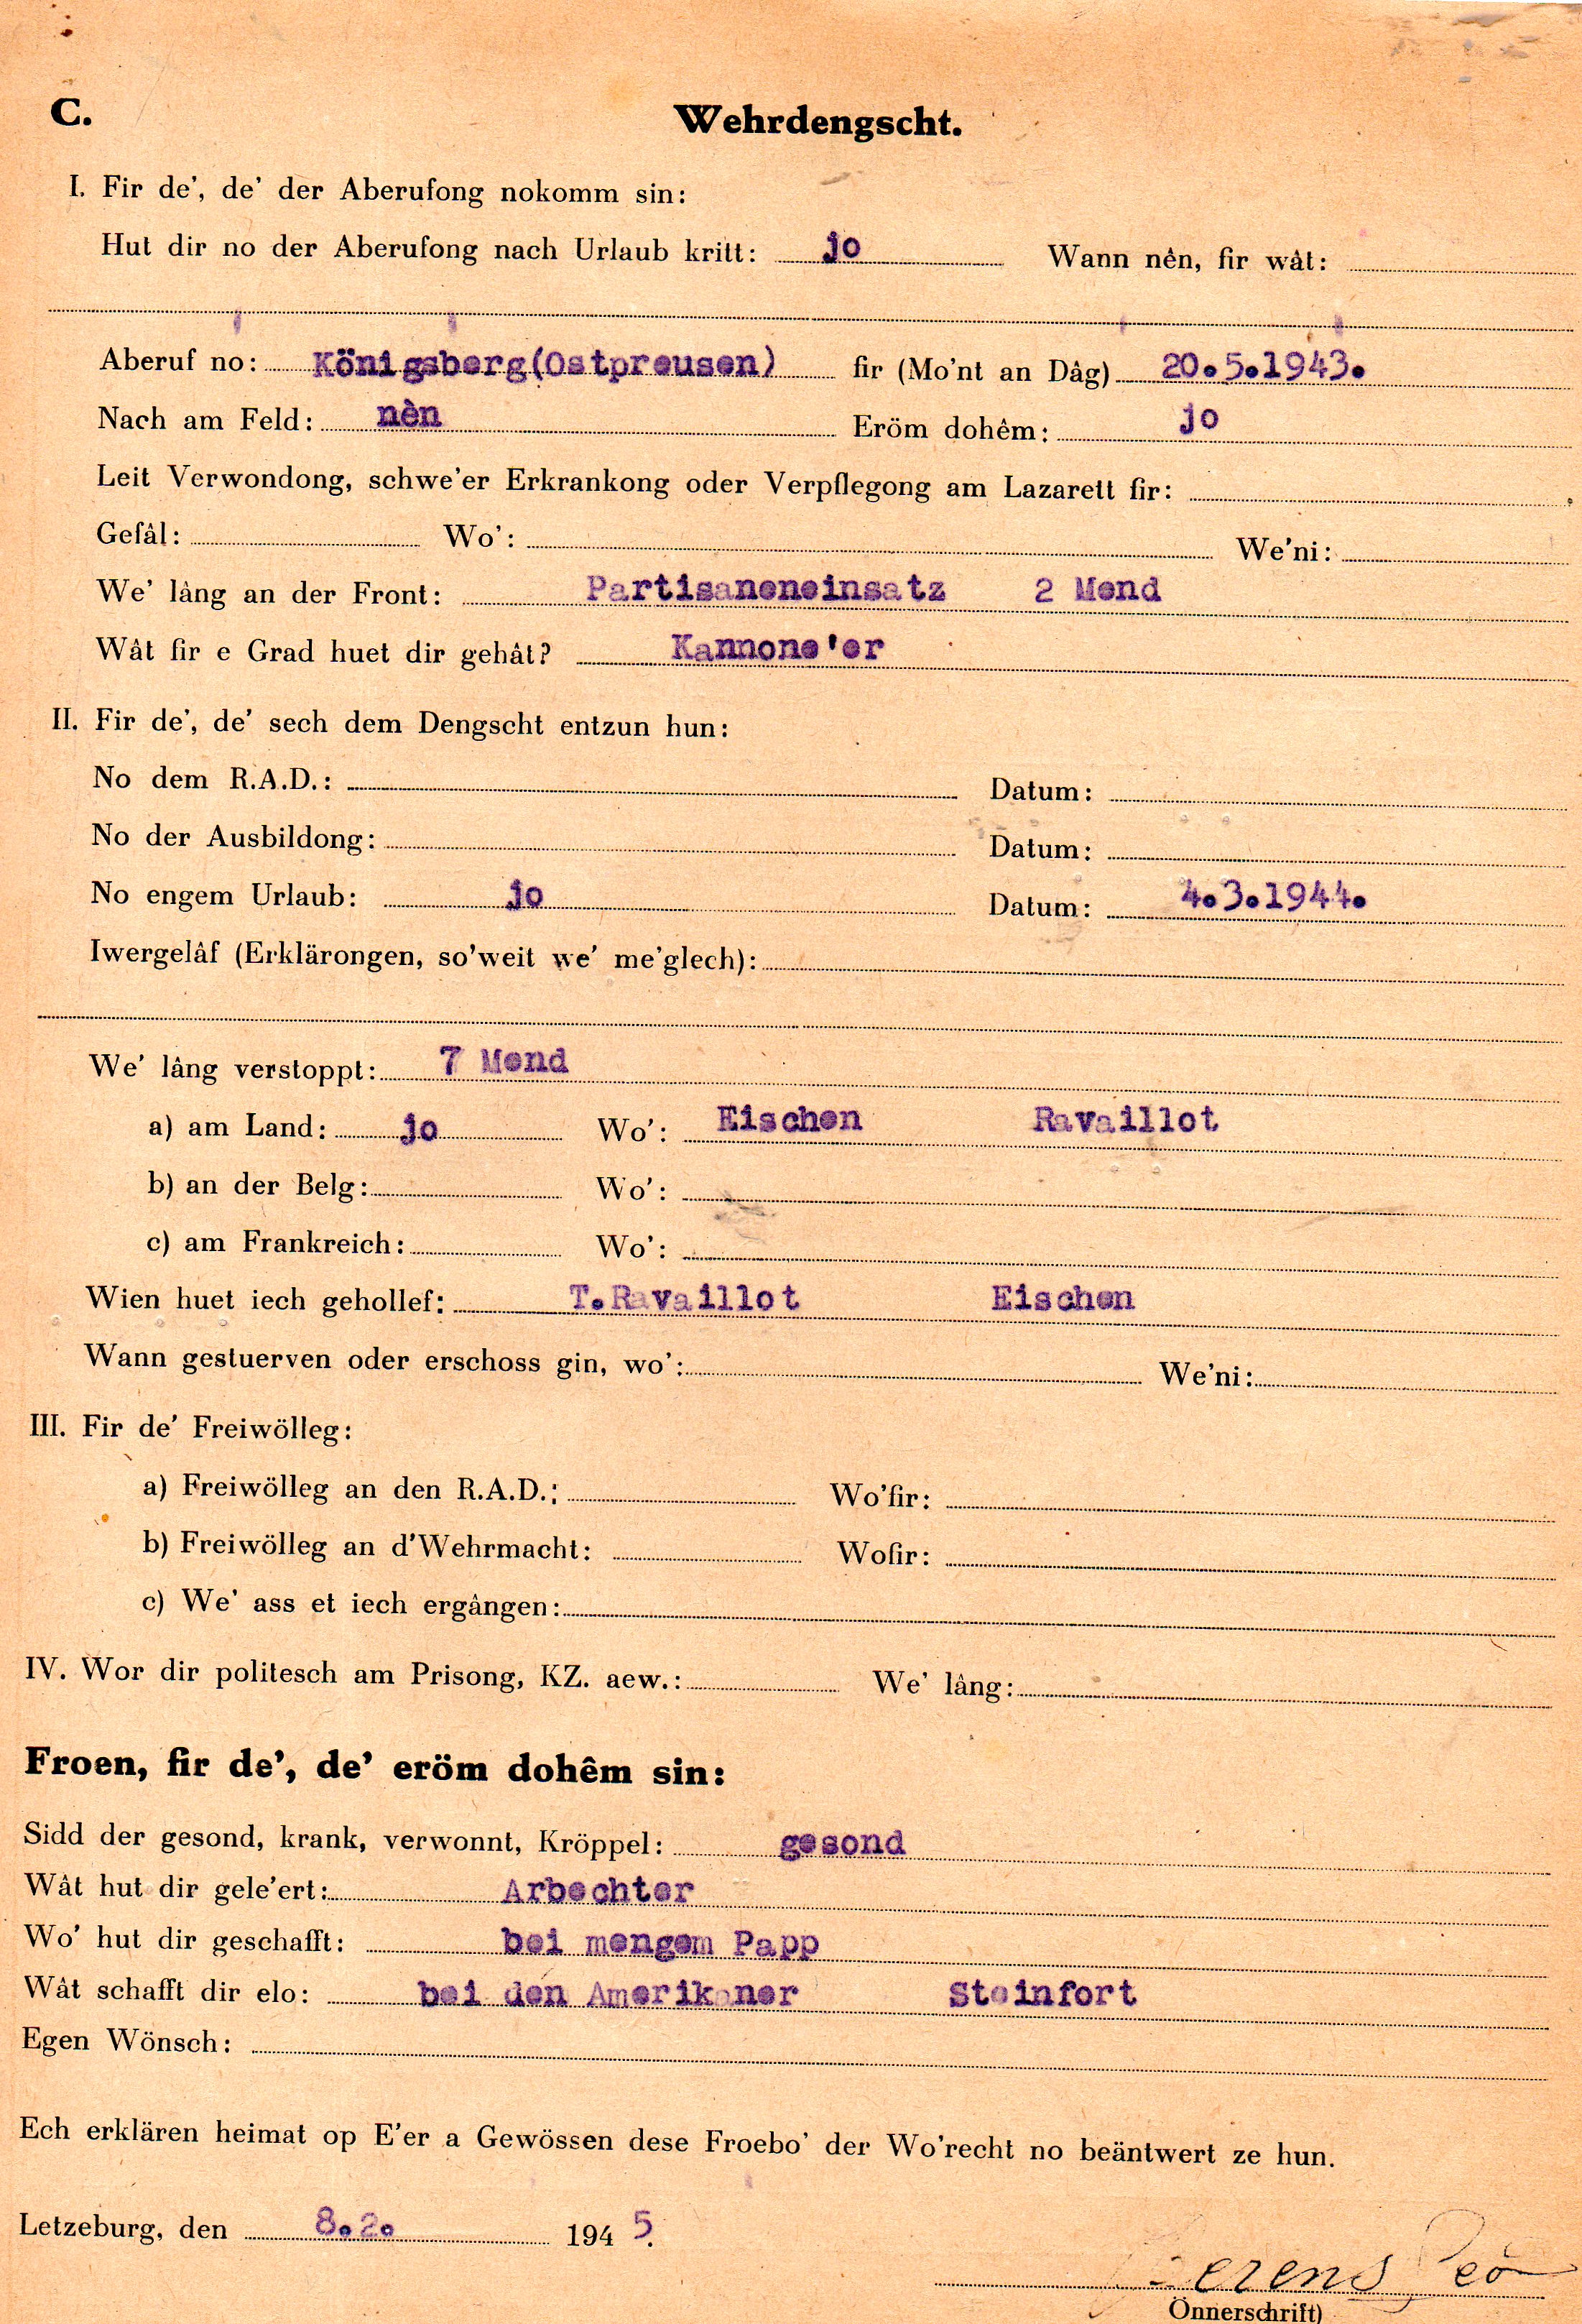 C. Wehrdengscht.
I. Fir de', de' der Aberufong nokomm sin:
Hut dir no der Aberufong nach Urlaub kritt: jo Wann nên, fir wât:
Aberuf no: Königsberg(Ostpreusen) fir (Mo'nt an Dâg) 20.5.1943.
Nach am Feld: nèn Eröm dohêm: jo
Leit Verwondong, schwe'er Erkrankong oder Verpflegong am Lazarett fir:
Gefâl: Wo': We'ni:
We' lâng an der Front: Partisaneneinsatz 2 Mend
Wât fir e Grad huet dir gehât? Kannone'er
II. Fir de', de' sech dem Dengscht entzun hun:
No dem R.A.D.: Datum:
No der Ausbildong: Datum:
No engem Urlaub: jo Datum: 4.3.1944.
Iwergelâf (Erklärongen, so'weit we' me'glech):
We' lâng verstoppt: 7 Mend
a) am Land: jo Wo': Eischen Ravaillot
b) an der Belg: Wo':
c) am Frankreich: Wo':
Wien huet iech gehollef: T.Ravaillot Eischen
Wann gestuerven oder erschoss gin, wo': We'ni:
III. Fir de' Freiwölleg:
a) Freiwölleg an den R.A.D.: Wo'fir:
b) Freiwölleg an d'Wehrmacht: Wofir:
c) We' ass et iech ergângen:
IV. Wor dir politesch am Prisong, KZ. aew.: We' lâng:
Froen, fir de', de' eröm dohêm sin:
Sidd der gesond, krank, verwonnt, Kröppel: gesond
Wât hut dir gele'ert: Arbechter
Wo' hut dir geschafft: bei mengem Papp
Wât schafft dir elo: bei den Amerikaner Steinfort
Egen Wönsch:
Ech erklären heimat op E'er a Gewössen dese Froebo' der Wo'recht no beäntwert ze hun.
Letzeburg, den 8.2. 1945.
Önnerschrift)